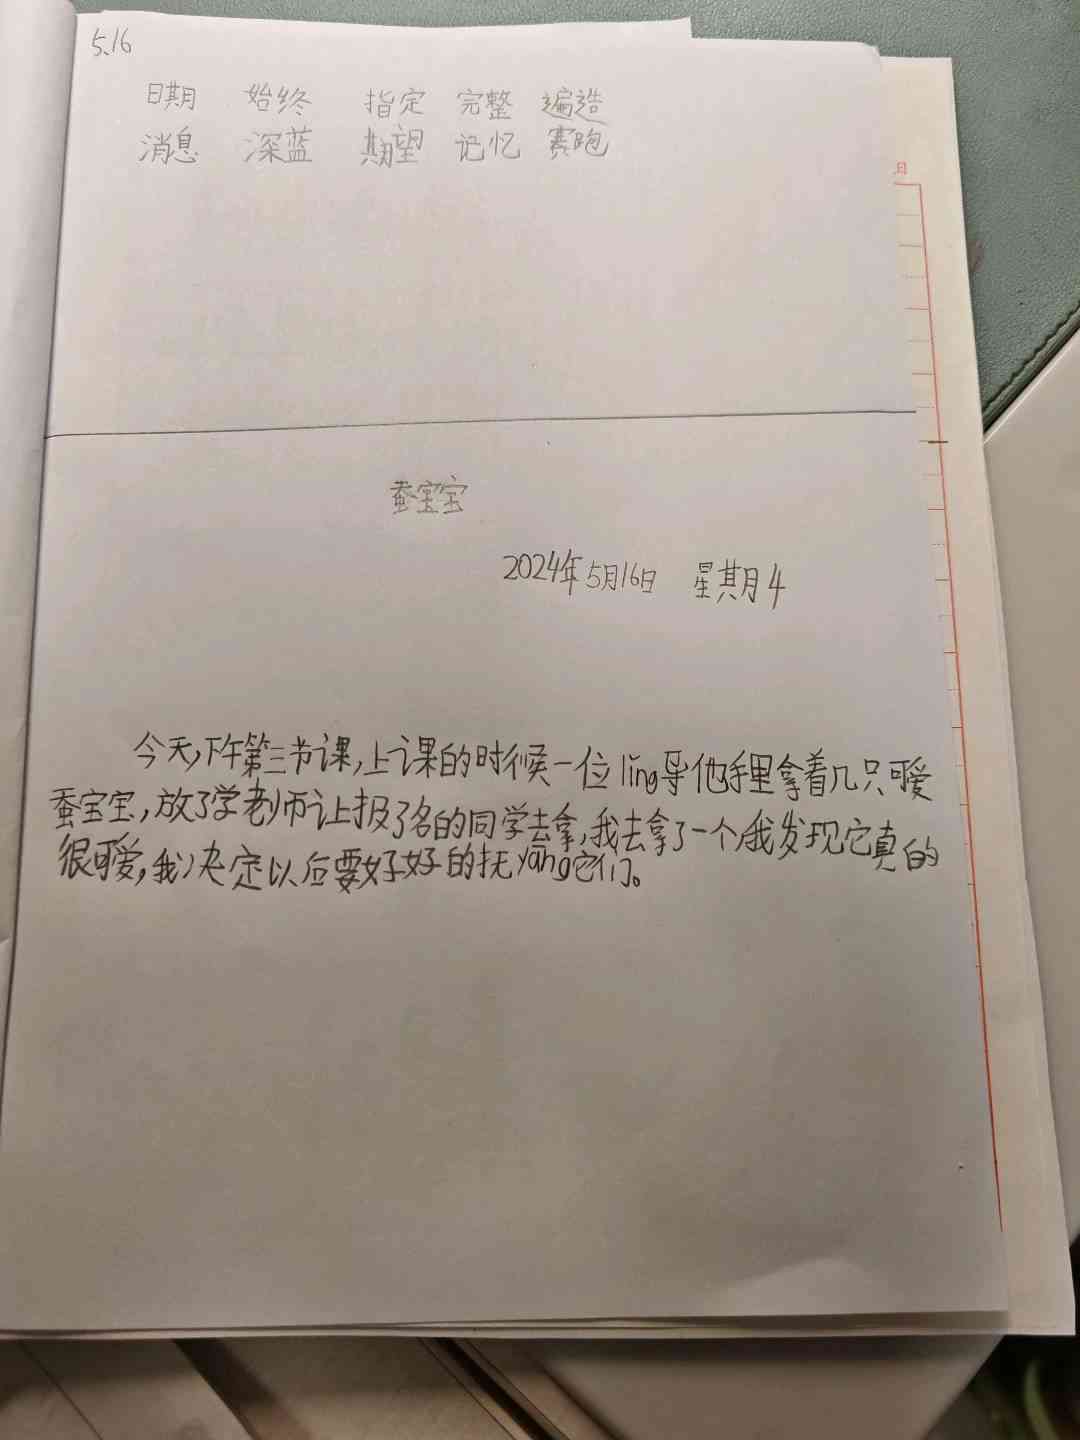 5.16
日期 始终 指定 完整 遍造
消息 深蓝 期望 记忆 赛跑
日
蚕宝宝
2024年5月16日 星期4
今天,下午第三节课,上课的时候一位ling导他手里拿着几只可爱
蚕宝宝,放了学老师让报了名的同学去拿,我去拿了一个,我发现它真的
很可爱,我决定以后要好好的抚yǎng它们。